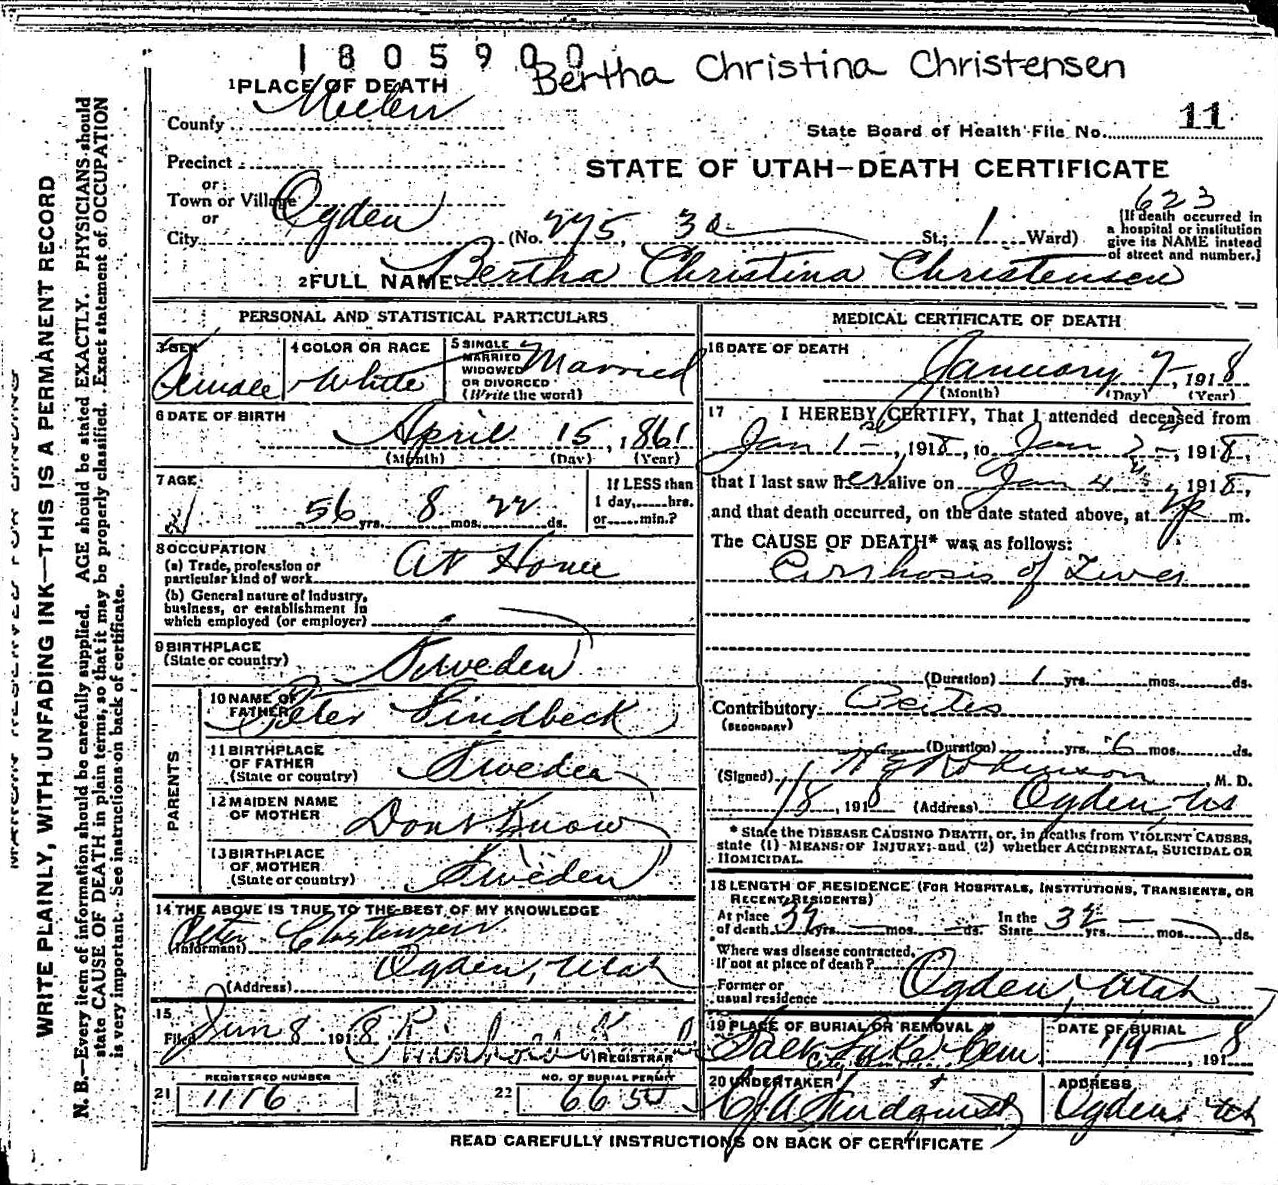 1805900
Bertha Christina Christensen
1 PLACE OF DEATH
County
State Board of Health File No. 11
Precinct
STATE OF UTAH—DEATH CERTIFICATE
or
Town or Village
Ogden
or
623
City (No. 275, 3d St.; 1 Ward)
[If death occurred in
a hospital or institution
give its NAME instead
of street and number.]
2 FULL NAME Bertha Christina Christensen
PERSONAL AND STATISTICAL PARTICULARS
3 SEX
Female
4 COLOR OR RACE
White
5 SINGLE
MARRIED
WIDOWED
OR DIVORCED
(Write the word)
Married
6 DATE OF BIRTH
April 15, 1861
(Month) (Day) (Year)
7 AGE
56 yrs. 8 mos. 22 ds.
If LESS than
1 day,......hrs.
or......min.?
8 OCCUPATION
(a) Trade, profession or
particular kind of work
At Home
(b) General nature of industry,
business, or establishment in
which employed (or employer)
9 BIRTHPLACE
(State or country)
Sweden
PARENTS
10 NAME OF
FATHER
Peter Lindbeck
11 BIRTHPLACE
OF FATHER
(State or country)
Sweden
12 MAIDEN NAME
OF MOTHER
Dont Know
13 BIRTHPLACE
OF MOTHER
(State or country)
Sweden
14 THE ABOVE IS TRUE TO THE BEST OF MY KNOWLEDGE
(Informant) Peter Christensen
(Address) Ogden, Utah
15
Filed 8 1918
REGISTRAR
REGISTERED NUMBER
21 1176
NO. OF BURIAL PERMIT
22 6650
MEDICAL CERTIFICATE OF DEATH
16 DATE OF DEATH
January 7, 1918
(Month) (Day) (Year)
17 I HEREBY CERTIFY, That I attended deceased from
Jan 1st, 1918, to Jan, 1918,
that I last saw her alive on Jan 4th 1918,
and that death occurred, on the date stated above, at m.
The CAUSE OF DEATH* was as follows:
Cirrhosis of Liver
(Duration) 1 yrs. mos. ds.
Contributory
(SECONDARY)
(Duration) yrs. 6 mos. ds.
(Signed) Robinson, M. D.
1/8, 1918 (Address) Ogden
* State the DISEASE CAUSING DEATH, or, in deaths from VIOLENT CAUSES,
state (1) MEANS OF INJURY; and (2) whether ACCIDENTAL, SUICIDAL OR
HOMICIDAL.
18 LENGTH OF RESIDENCE (FOR HOSPITALS, INSTITUTIONS, TRANSIENTS, OR
RECENT RESIDENTS)
At place
of death yrs. mos. ds.
In the
State yrs. mos. ds.
Where was disease contracted,
If not at place of death?
Former or
usual residence
Ogden, Utah
19 PLACE OF BURIAL OR REMOVAL
Salt Lake City Cem.
DATE OF BURIAL
1/9, 1918
20 UNDERTAKER
Lindquist
ADDRESS
Ogden Ut
READ CAREFULLY INSTRUCTIONS ON BACK OF CERTIFICATE
WRITE PLAINLY, WITH UNFADING INK—THIS IS A PERMANENT RECORD
N. B.—Every item of information should be carefully supplied. AGE should be stated EXACTLY. PHYSICIANS should
state CAUSE OF DEATH in plain terms, so that it may be properly classified. Exact statement of OCCUPATION
is very important. See instructions on back of certificate.